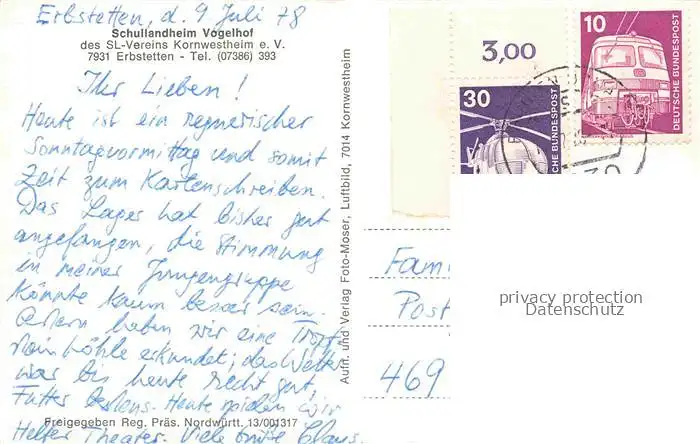 Erbstetten, d. 9 Juli 78
Schullandheim Vogelhof
des SL-Vereins Kornwestheim e. V.
7931 Erbstetten - Tel. (07386) 393
Ihr Lieben!
Heute ist ein regnerischer
Sonntagvormittag und somit
Zeit zum Kartenschreiben.
Das Lager hat bisher gut
angefangen, die Stimmung
in meiner Jungengruppe
könnte kaum besser sein.
Gestern haben wir eine Tropf-
steinhöhle erkundet; das Wetter
war bis heute recht gut,
Futter bestens. Heute spielen wir
Freigegeben Reg. Präs. Nordwürtt. 13/001317
Helfer Theater. Viele Grüße Claus
Aufn. und Verlag Foto-Moser, Luftbild, 7014 Kornwestheim
3,00
10
DEUTSCHE BUNDESPOST
30
CHE BUNDESPOST
Fam
Post
469
privacy protection
Datenschutz